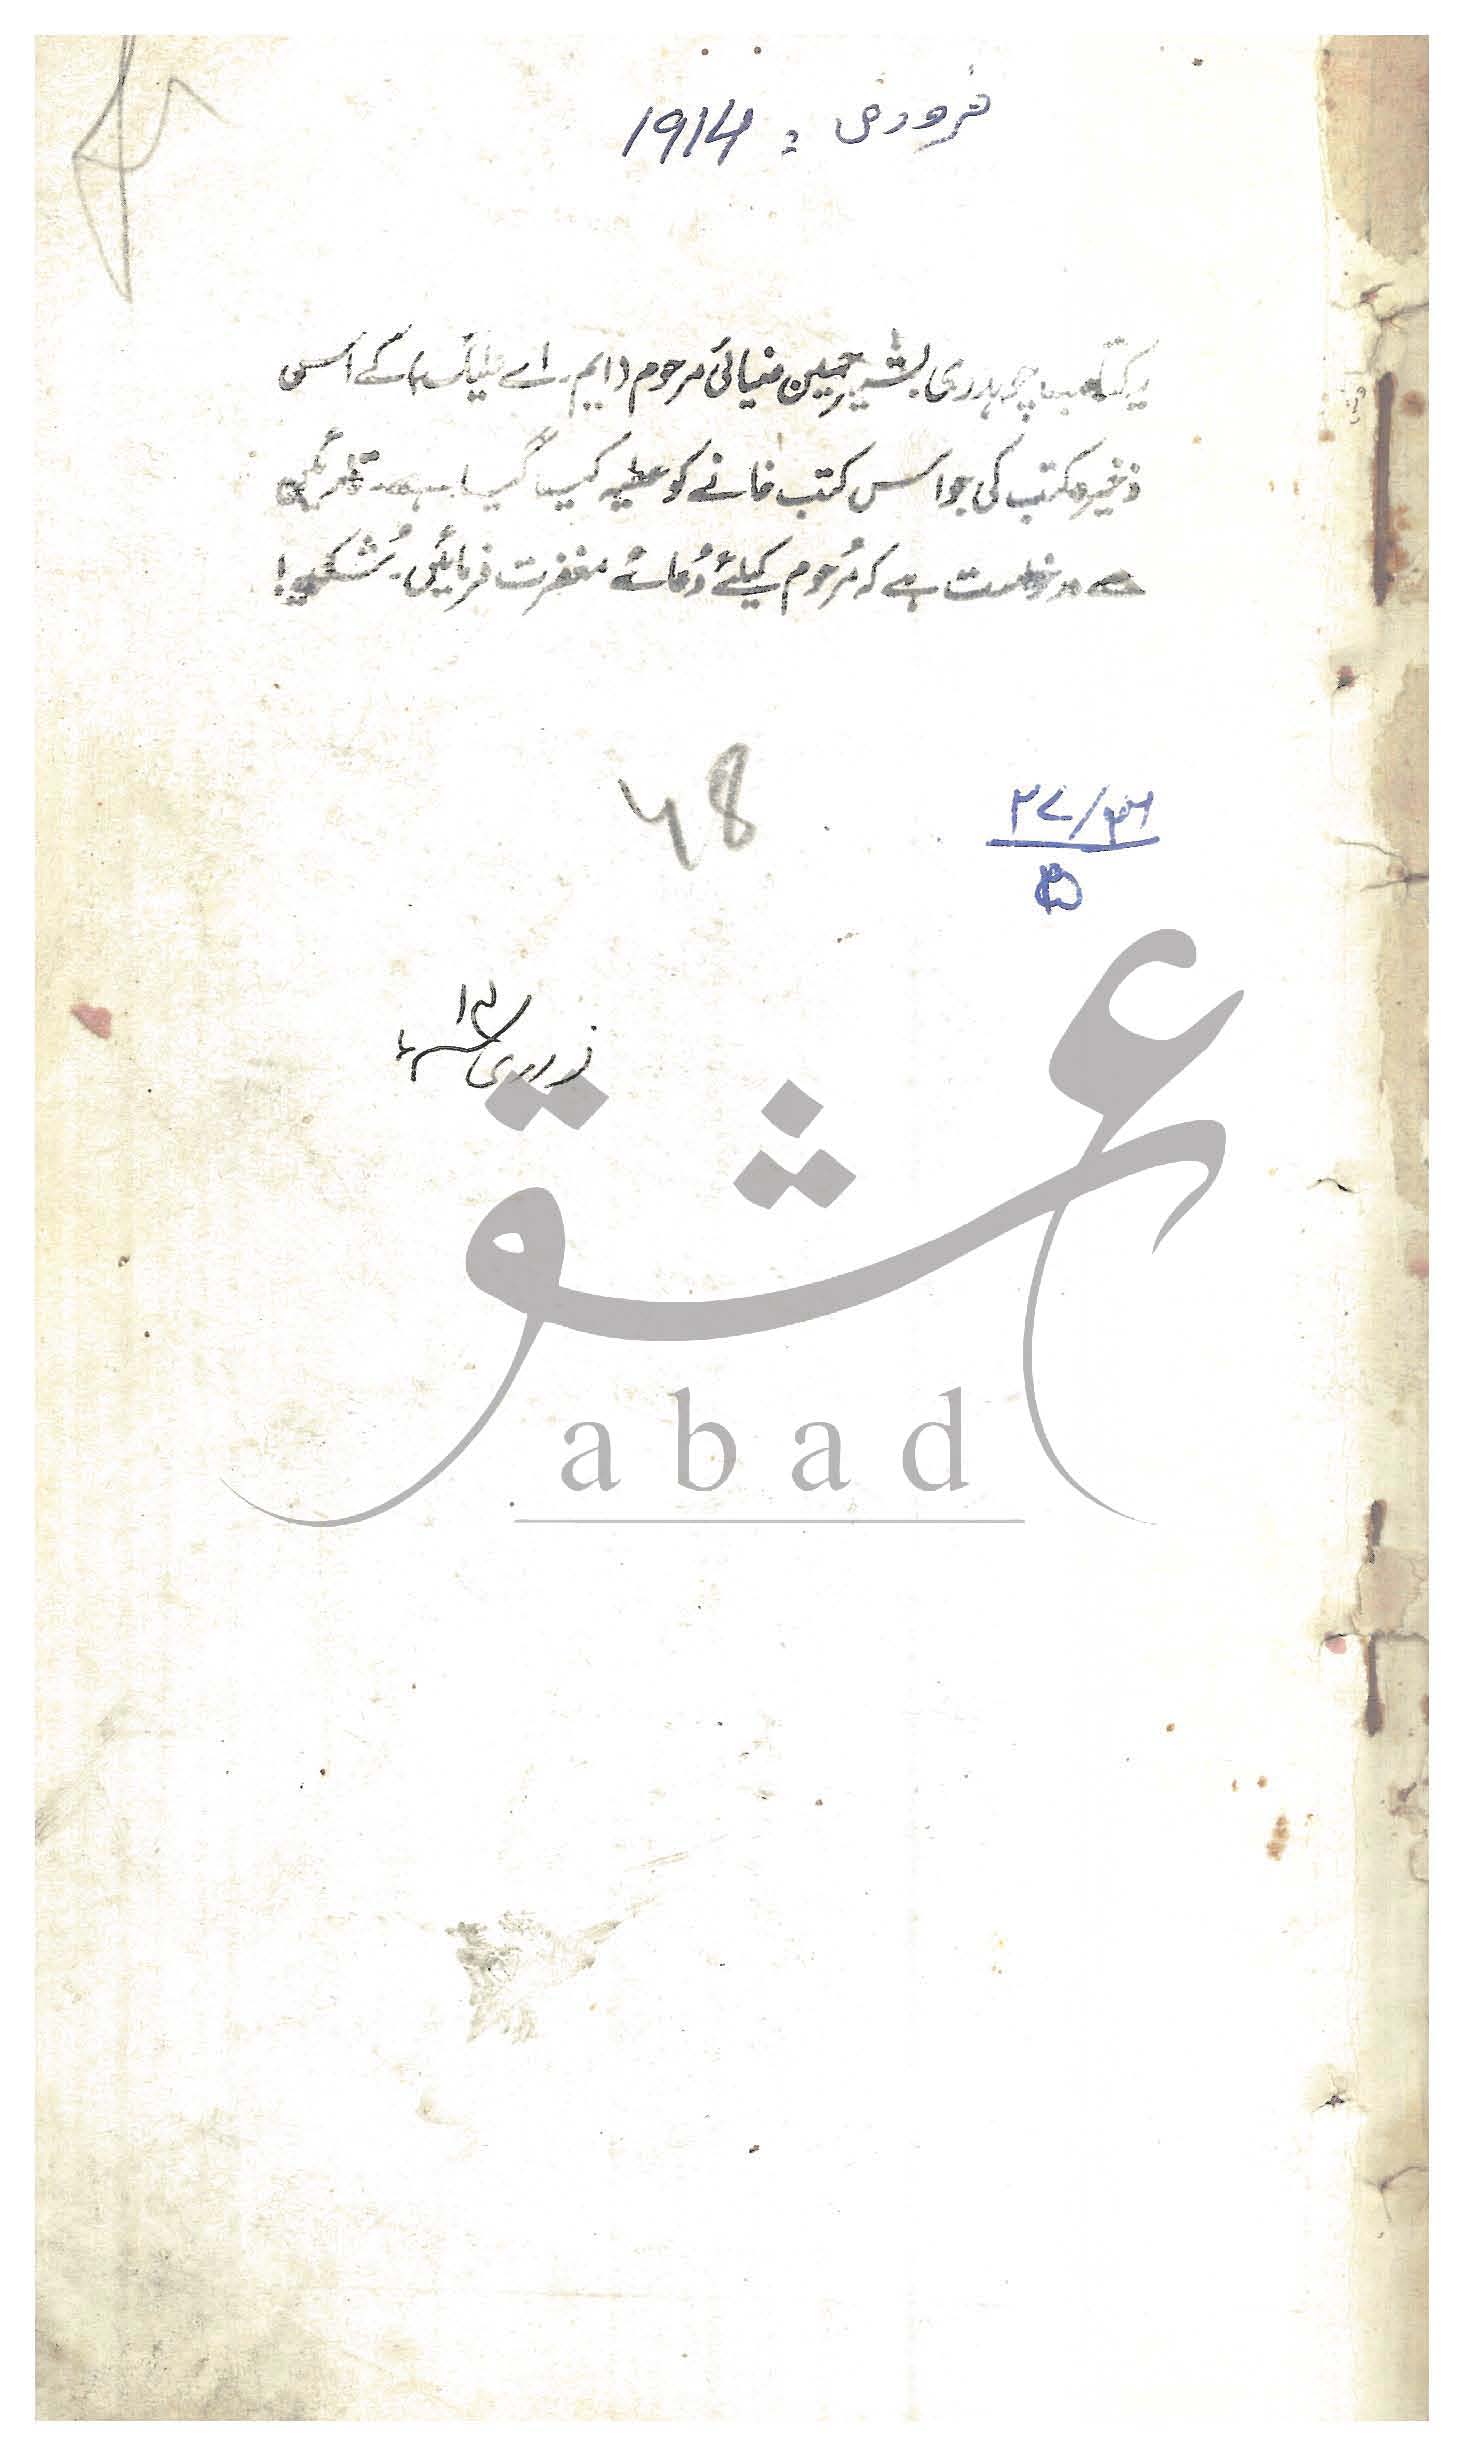 فروری ؛ 1914
یہ کتاب چوہدری بشیر حسین ضیائی مرحوم (ایم۔ اے علیگ) کے اس
ذخیرہ کتب کی جو اس کتب خانے کو عطیہ کیا گیا ہے۔ قارئین
سے درخواست ہے کہ مرُحوم کیلئے دُعائے مغفرت فرمائیں۔ شُکریہ!
۲۷/۳۱
فروری ۱۴ء
عشق
abad